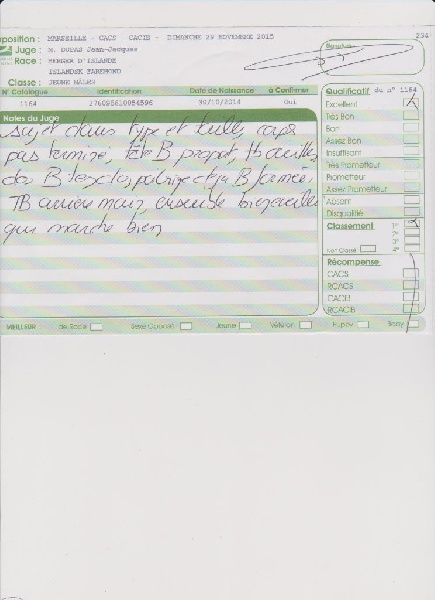 position : MARSEILLE - CACS CACIB - DIMANCHE 29 NOVEMBRE 2015 234
Juge : M. DUPAS Jean-Jacques
Race : BERGER D'ISLANDE
ISLANDSK FAREHOND
Classe : JEUNE MALES
Signature
N° Catalogue Identification Date de Naissance à Confirmer
1164 30/10/2014 Oui
Notes du Juge
sujet dans type et taille, corps
pas terminé, tête B proport, tb oreilles
dos B texctos, poitrine B formée
TB arrière main, ensemble
qui marche bien
Qualificatif du n° 1164
Excellent
Très Bon
Bon
Assez Bon
Insuffisant
Très Prometteur
Prometteur
Assez Prometteur
Absent
Disqualifié
Classement
Non Classé
Récompense
CACS
RCACS
CACIB
RCACIB
MEILLEUR de Race Sexe Opposé Jeune Vétéran Puppy Baby